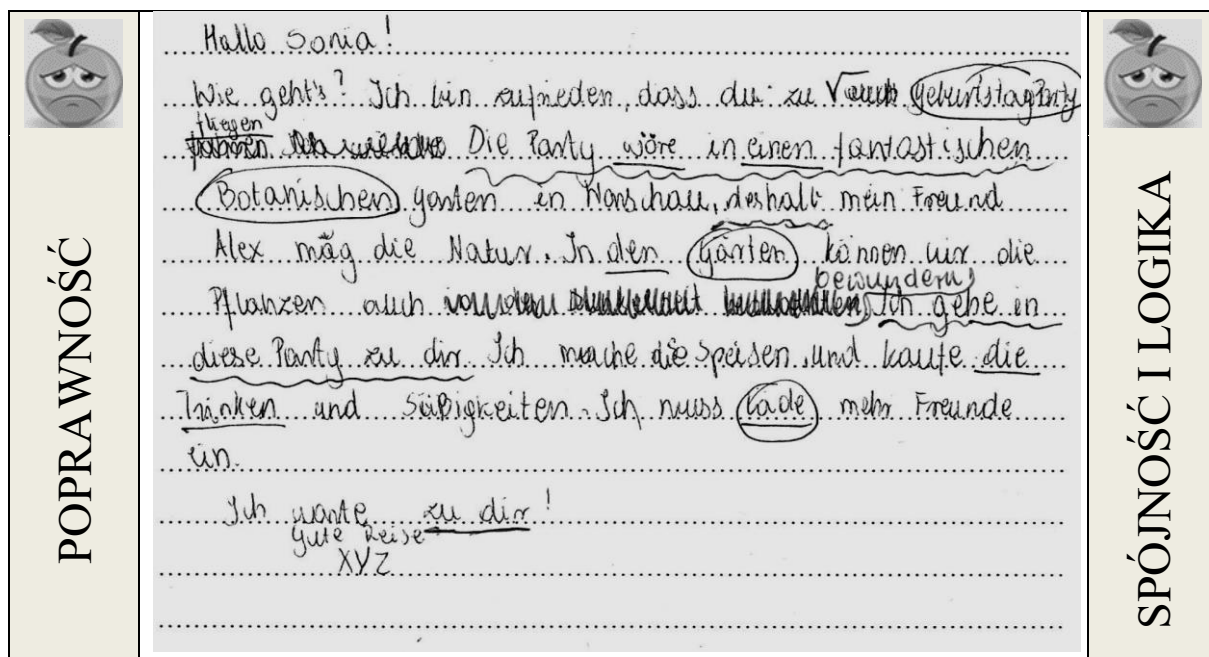 POPRAWNOŚĆ
Hallo Sonia!
Wie geht's? Ich bin zufrieden, dass du zu GeburtstagParty
fliegen Die Party wöre in einen fantastischen
Botanischen garten in Warschau, deshalb mein Freund
Alex mäg die Natur. In den Gärten können wir die
Pflanzen auch bewundern) Ich gehe in
diese Party zu dir. Ich mache die Speisen und kaufe die
Trinken und Süßigkeiten. Ich muss lade mehr Freunde
ein.
Ich warte zu dir!
Gute Reise
XYZ
SPÓJNOŚĆ I LOGIKA